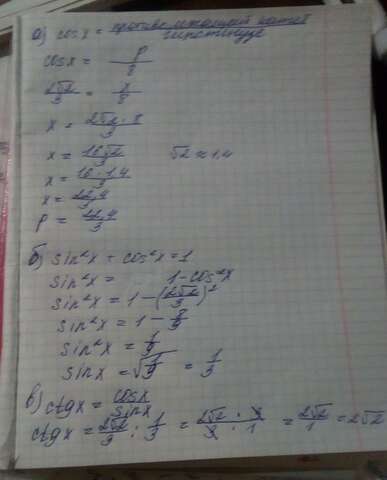 а) cosx = противолежащий катет / гипотенузе
cosx = p/8
2√2/3 = x/8
x = 2√2·8/3
x = 16√2/3 √2 ≈ 1,4
x = 16·1,4/3
x = 22,4/3
p = 22,4/3
б) sin²x + cos²x = 1
sin²x = 1-cos²x
sin²x = 1-(2√2/3)²
sin²x = 1 - 8/9
sin²x = 1/9
sinx = √1/9 = 1/3
в) ctgx = cosx/sinx
ctgx = 2√2/3 : 1/3 = 2√2·3/3·1 = 2√2/1 = 2√2